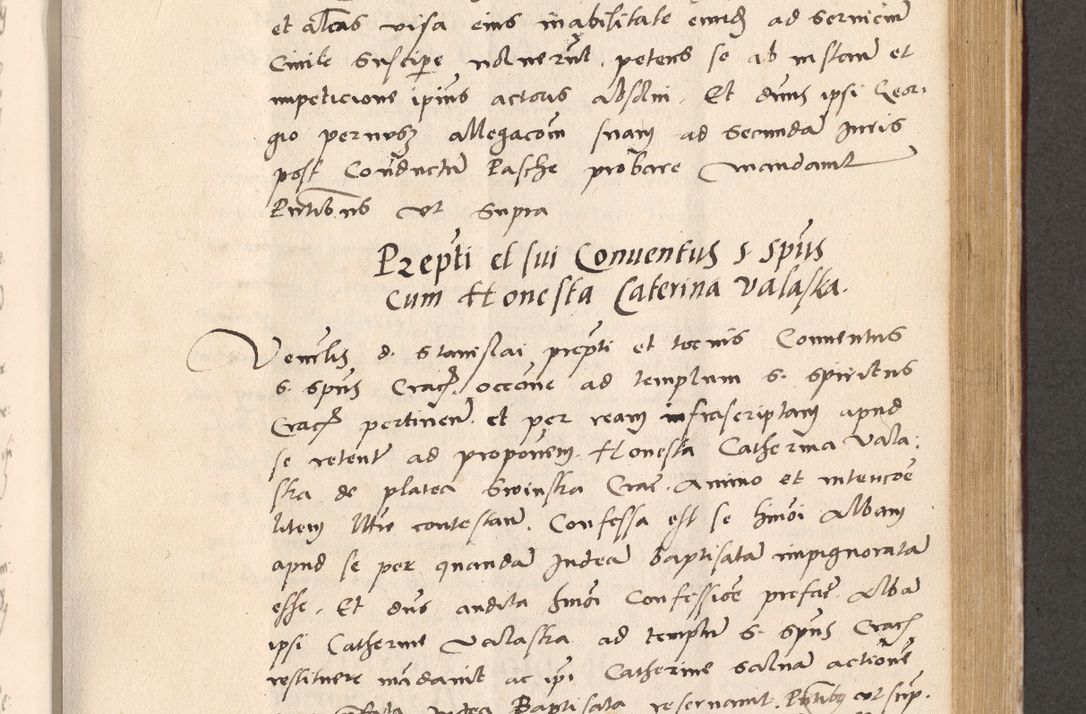 et alias visa eius inabilitate eundem ad serviciũ
Civile Suscipe noluerũt. petens se ab instan̄ et
impeticione ipius actoris absolvi. Et dn̄us ipsi Geor-
gio pernusz allegacōm suam ad secundā Juris
post Conductū Pasche probare mandavit
Pn̄tibus ut supra
Prep̄ti et sui Conventus s sp̄us
cum Honesta Caterina Valaska.
Ven̄lis d. Stanislai prep̄ti et totius Conventus
s. sp̄us Crac̄. occōne ad templum s. spiritus
Crac̄ pertinen̄. et per ream infrascriptam apud
se retent̄ ad propōnem. Honesta Catherina Vala-
ska de platea Swinska Crac̄. Animo et intencōe
litem l̄tīe contestan̄. Confessa est se hm̄oi Albam
apud se per quandā Judeā baptisatā impignoratā
esse. Et dn̄s audita hm̄oi Confessiōe prefat̄ Albā
ipsi Catherine Valaska ad templū s. sp̄us Crac̄
restituere mādavit ac ipi Catherine salvā actiōne
Judea Baptisata reservavit. Pn̄tibus ut sup̄.